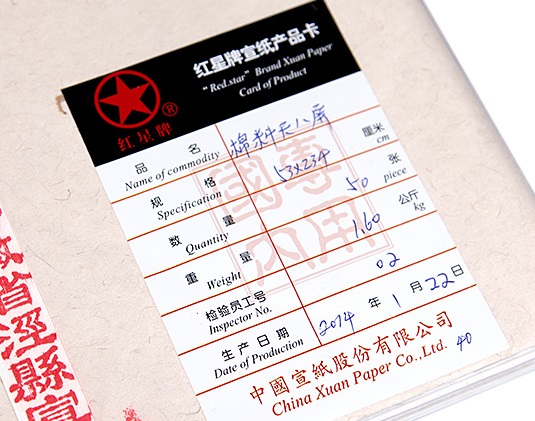 红星牌宣纸产品卡
"Red.star" Brand Xuan Paper
Card of Product
®
红星牌
品 名 棉料天八屏
Name of commodity
规 格 53x234 厘米
Specification cm
数 量 50 张
Quantity piece
重 量 1.60 公斤
Weight kg
检验员工号 02
Inspector No.
生产日期 2014 年 1 月 22 日
Date of Production
中國宣紙股份有限公司
China Xuan Paper Co.,Ltd. 40
國專
內用
省涇縣宣